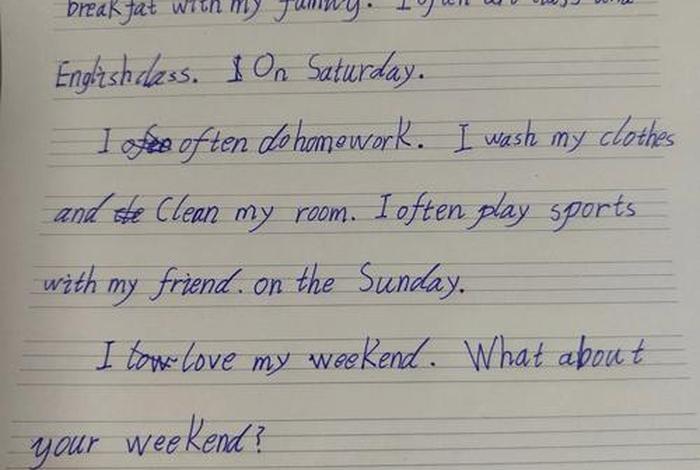 breakfat with my family. I often
Englishclass. I On Saturday.
I often often dohomework. I wash my clothes
and Clean my room. I often play sports
with my friend. on the Sunday.
I love my weekend. What about
your weekend?